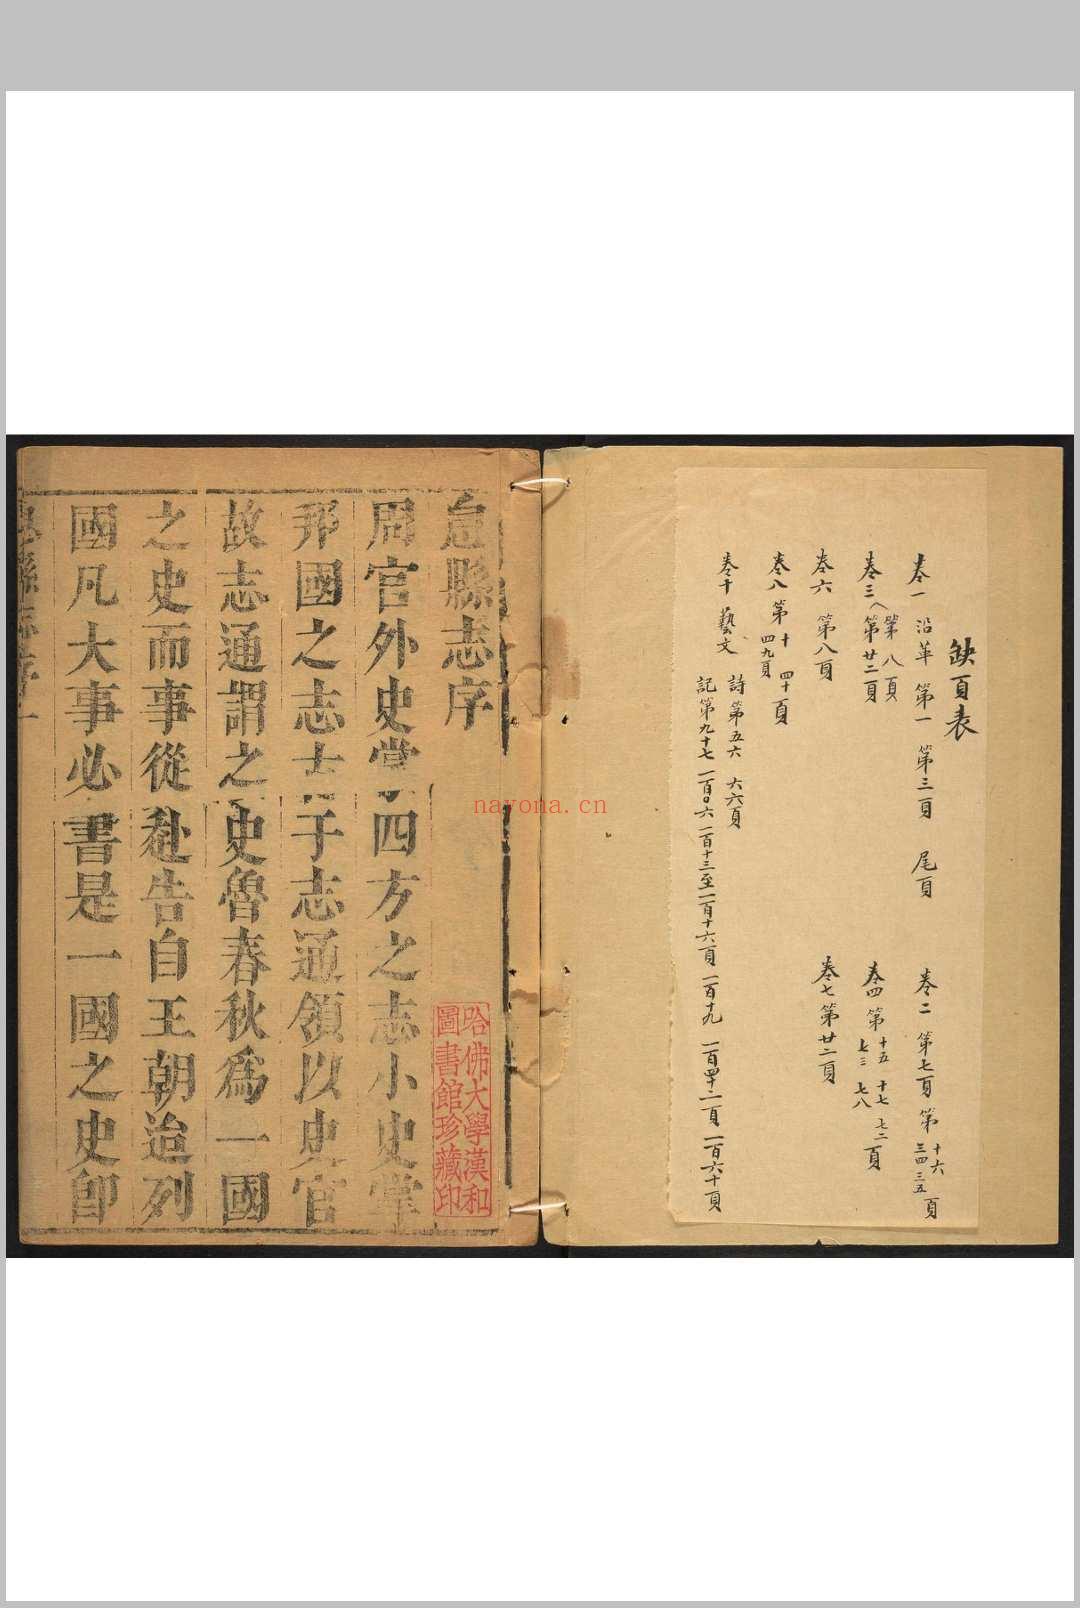 缺頁表
卷一 沿革 第一 第三頁 尾頁
卷二 第七頁 第十六 三四 三五頁
卷三 第八頁 第廿二頁
卷四 第十五 十七 七二 七三 七八頁
卷六 第八頁
卷七 第廿二頁
卷八 第十 四十 四九頁
卷十 藝文 詩 第五六 六六頁
記 第九十七 一百〇六 一百十三至一百十六頁 一百十九 一百四十二頁 一百六十頁
息縣志序
周官外史掌四方之志小史掌
邦國之志志于志通領以史官
故志通謂之史魯春秋為一國
之史而事從赴告自王朝迨列
國凡大事必書是一國之史卽
息縣志序 一
哈佛大學漢和
圖書館珍藏印
nayona.cn